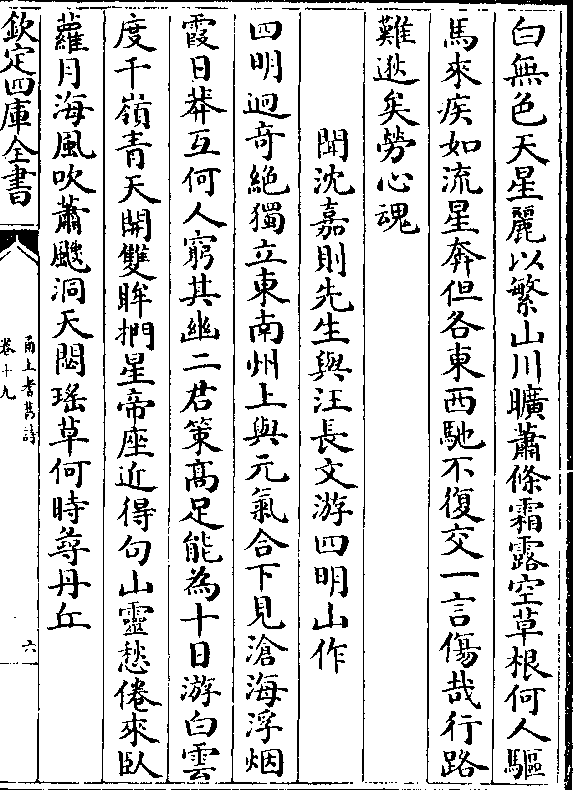 白無色天星麗以繁山川曠蕭條霜露空草根何人驅
馬來疾如流星奔但各東西馳不復交一言傷哉行路
難逖矣勞心魂
聞沈嘉則先生與汪長文游四明山作
四明迥奇絶獨立東南州上與元氣合下見滄海浮烟
霞日莽互何人窮其幽二君策高足能為十日游白雲
度千嶺青天開雙眸捫星帝座近得句山靈愁倦來臥
蘿月海風吹蕭颼洞天閟瑤草何時尋丹丘
欽定四庫全書
甬上耆舊詩
卷十九
六